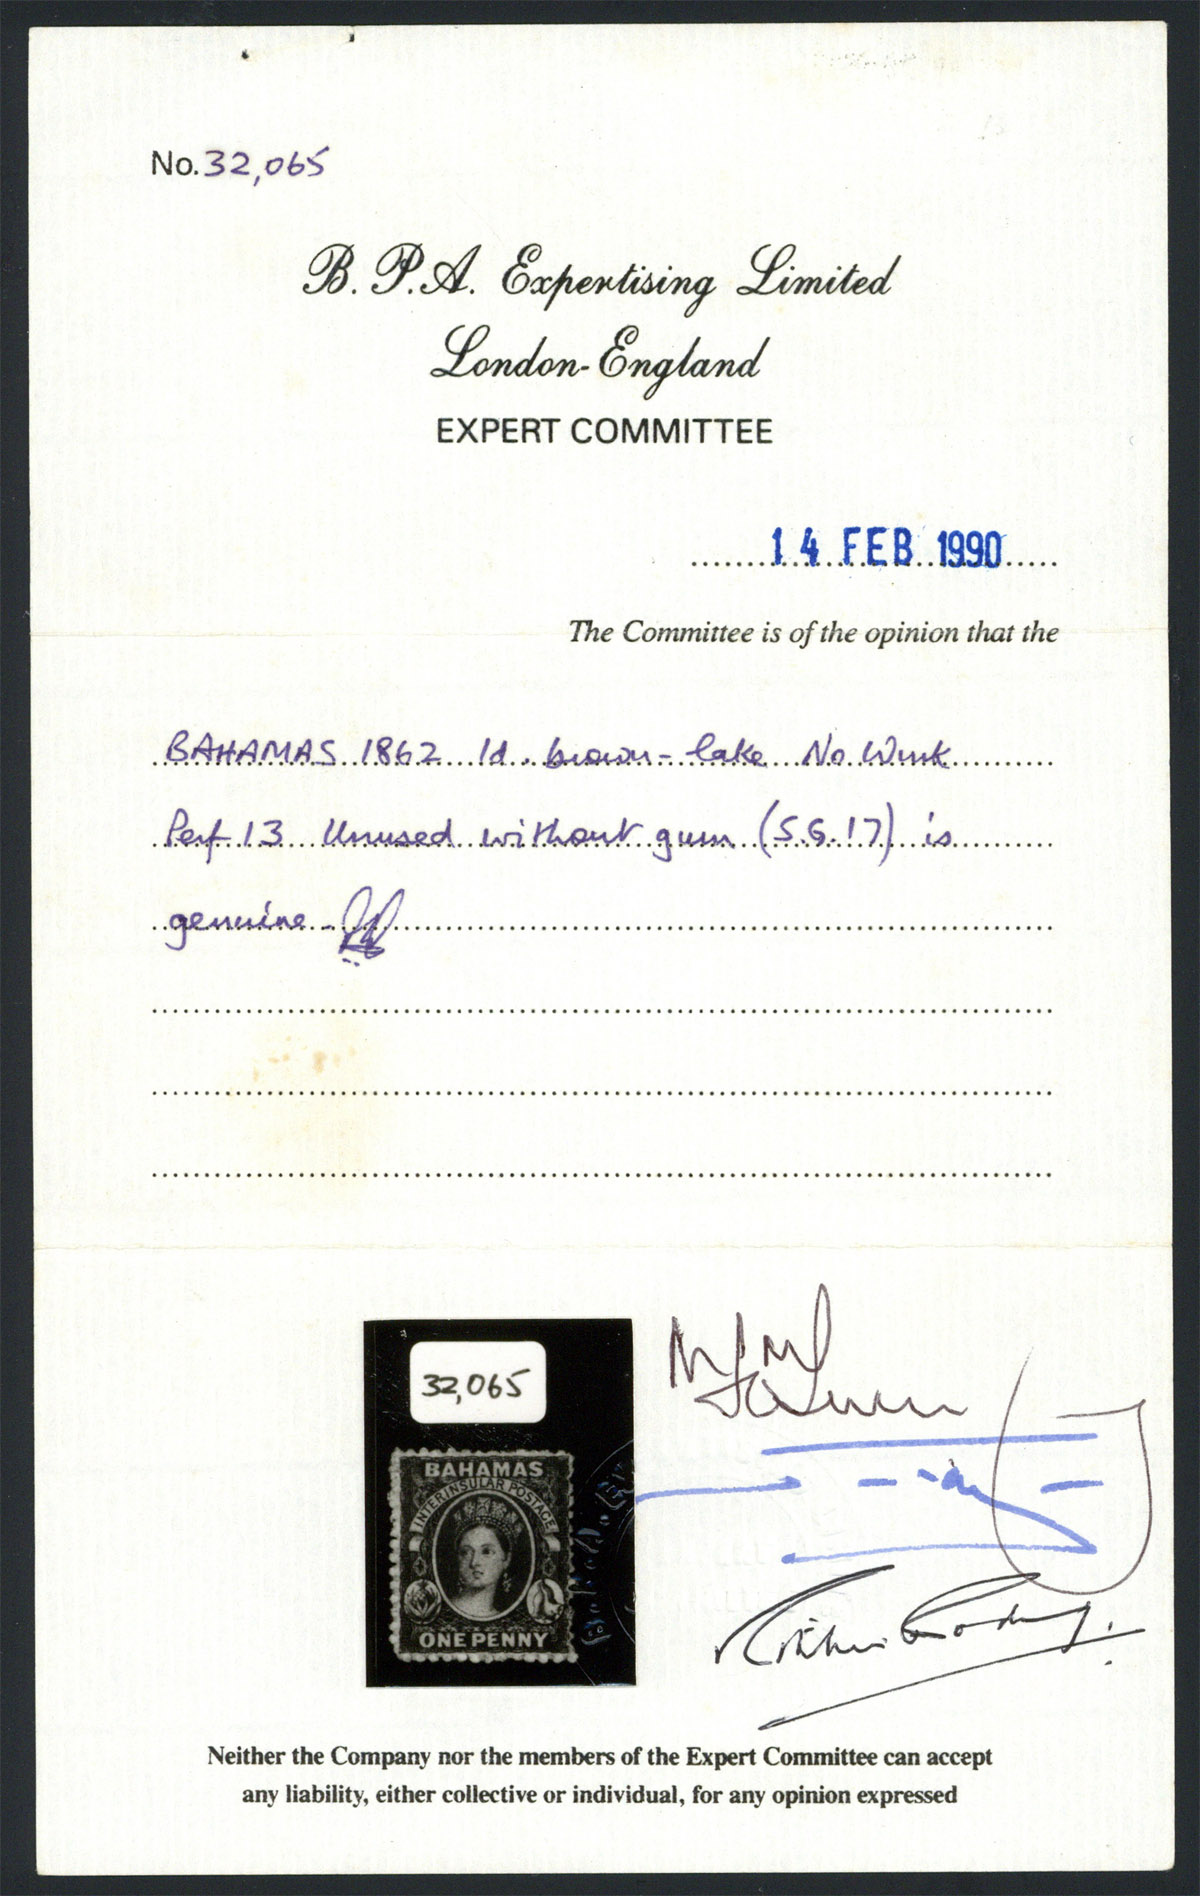 No. 32,065
B. P. A. Expertising Limited
London-England
EXPERT COMMITTEE
14 FEB 1990
The Committee is of the opinion that the
BAHAMAS 1862 1d. brown-lake No Wmk
Perf 13 Unused without gum (S.G.17) is
genuine.
32,065
BAHAMAS
INTERINSULAR POSTAGE
ONE PENNY
Neither the Company nor the members of the Expert Committee can accept
any liability, either collective or individual, for any opinion expressed